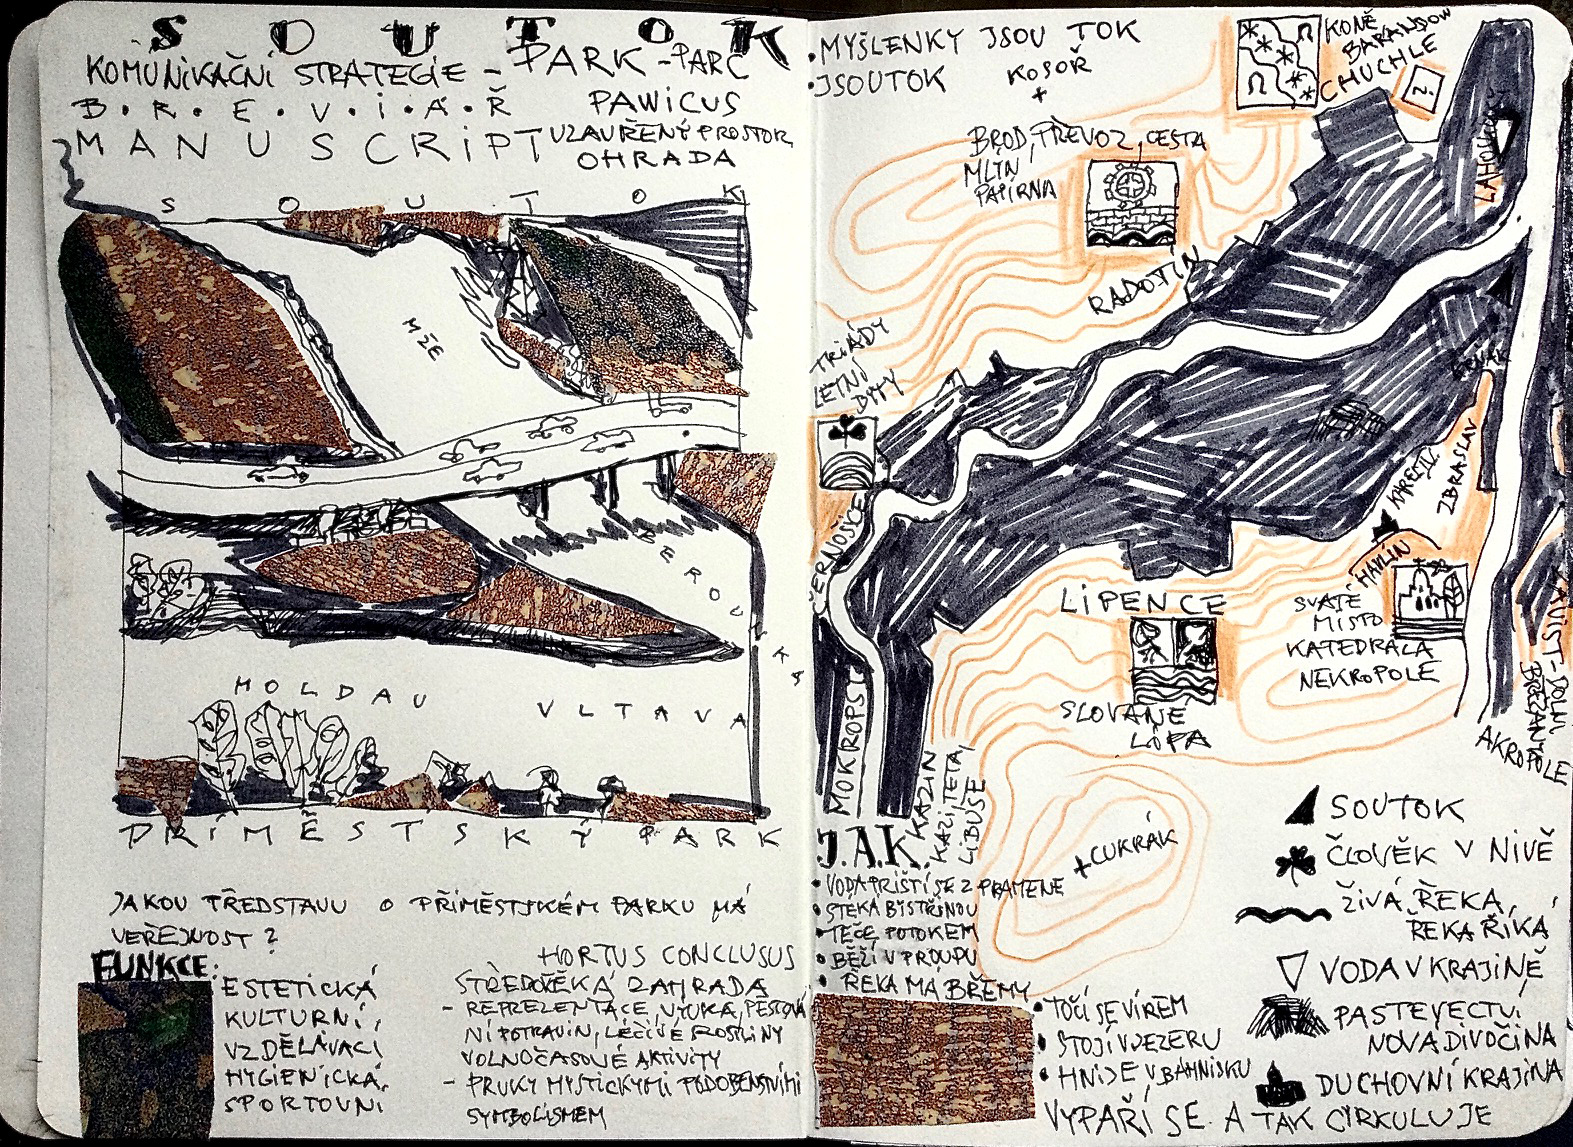 SOUTOK
KOMUNIKAČNÍ STRATEGIE - PARK - PARC
B.R.E.V.I.Á.Ř PAWICUS
MANUSCRIPT UZAVŘENÝ PROSTOR
OHRADA
SOUTOK
MŽE
BEROUNKA
MOLDAU VLTAVA
PŘÍMĚSTSKÝ PARK
JAKOU PŘEDSTAVU O PŘÍMĚSTSKÉM PARKU MÁ
VEŘEJNOST?
FUNKCE:
ESTETICKÁ
KULTURNÍ,
VZDĚLÁVACÍ
HYGIENICKÁ,
SPORTOVNÍ
HORTUS CONCLUSUS
STŘEDOVĚKÁ ZAHRADA
- REPREZENTACE, VÝUKA, PĚSTOVÁ
NÍ POTRAVIN, LÉČIVÉ ROSTLINY
VOLNOČASOVÉ AKTIVITY
- PRVKY MYSTICKÝMI PODOBENSTVÍMI
SYMBOLISMEM
• MYŠLENKY JSOU TOK
• JSOUTOK
KOSOŘ
+
KONĚ
BARANDOW
CHUCHLE
?
BROD, PŘEVOZ, CESTA
MLÝN
PAPÍRNA
RADOTÍN
LAHOVICE
TRIÁDY
LETNÍ
BYTY
ČERNOŠICE
MOKROPSY
KAZÍN
KAZI, TETA,
LIBUŠE
LIPENCE
SLOVANÉ
LÍPA
KAREL IV.
ZBRASLAV
HAVLÍN
SVATÉ
MÍSTO
KATEDRÁLA
NEKROPOLE
ZÁVIST - DOLNÍ
BŘEŽANY
AKROPOLE
+CUKRÁK
J.A.K.
• VODA PRÝŠTÍ SE Z PRAMENE
• STÉKÁ BYSTŘINOU
• TEČE POTOKEM
• BĚŽÍ V PROUDU
• ŘEKA MÁ BŘEHY
• TOČÍ SE VÍREM
• STOJÍ V JEZERU
• HNIJE V BAHNISKU
VYPAŘÍ SE A TAK CIRKULUJE
SOUTOK
ČLOVĚK V NIVĚ
ŽIVÁ ŘEKA,
ŘEKA ŘÍKÁ
VODA V KRAJINĚ
PASTEVECTVÍ
NOVÁ DIVOČINA
DUCHOVNÍ KRAJINA